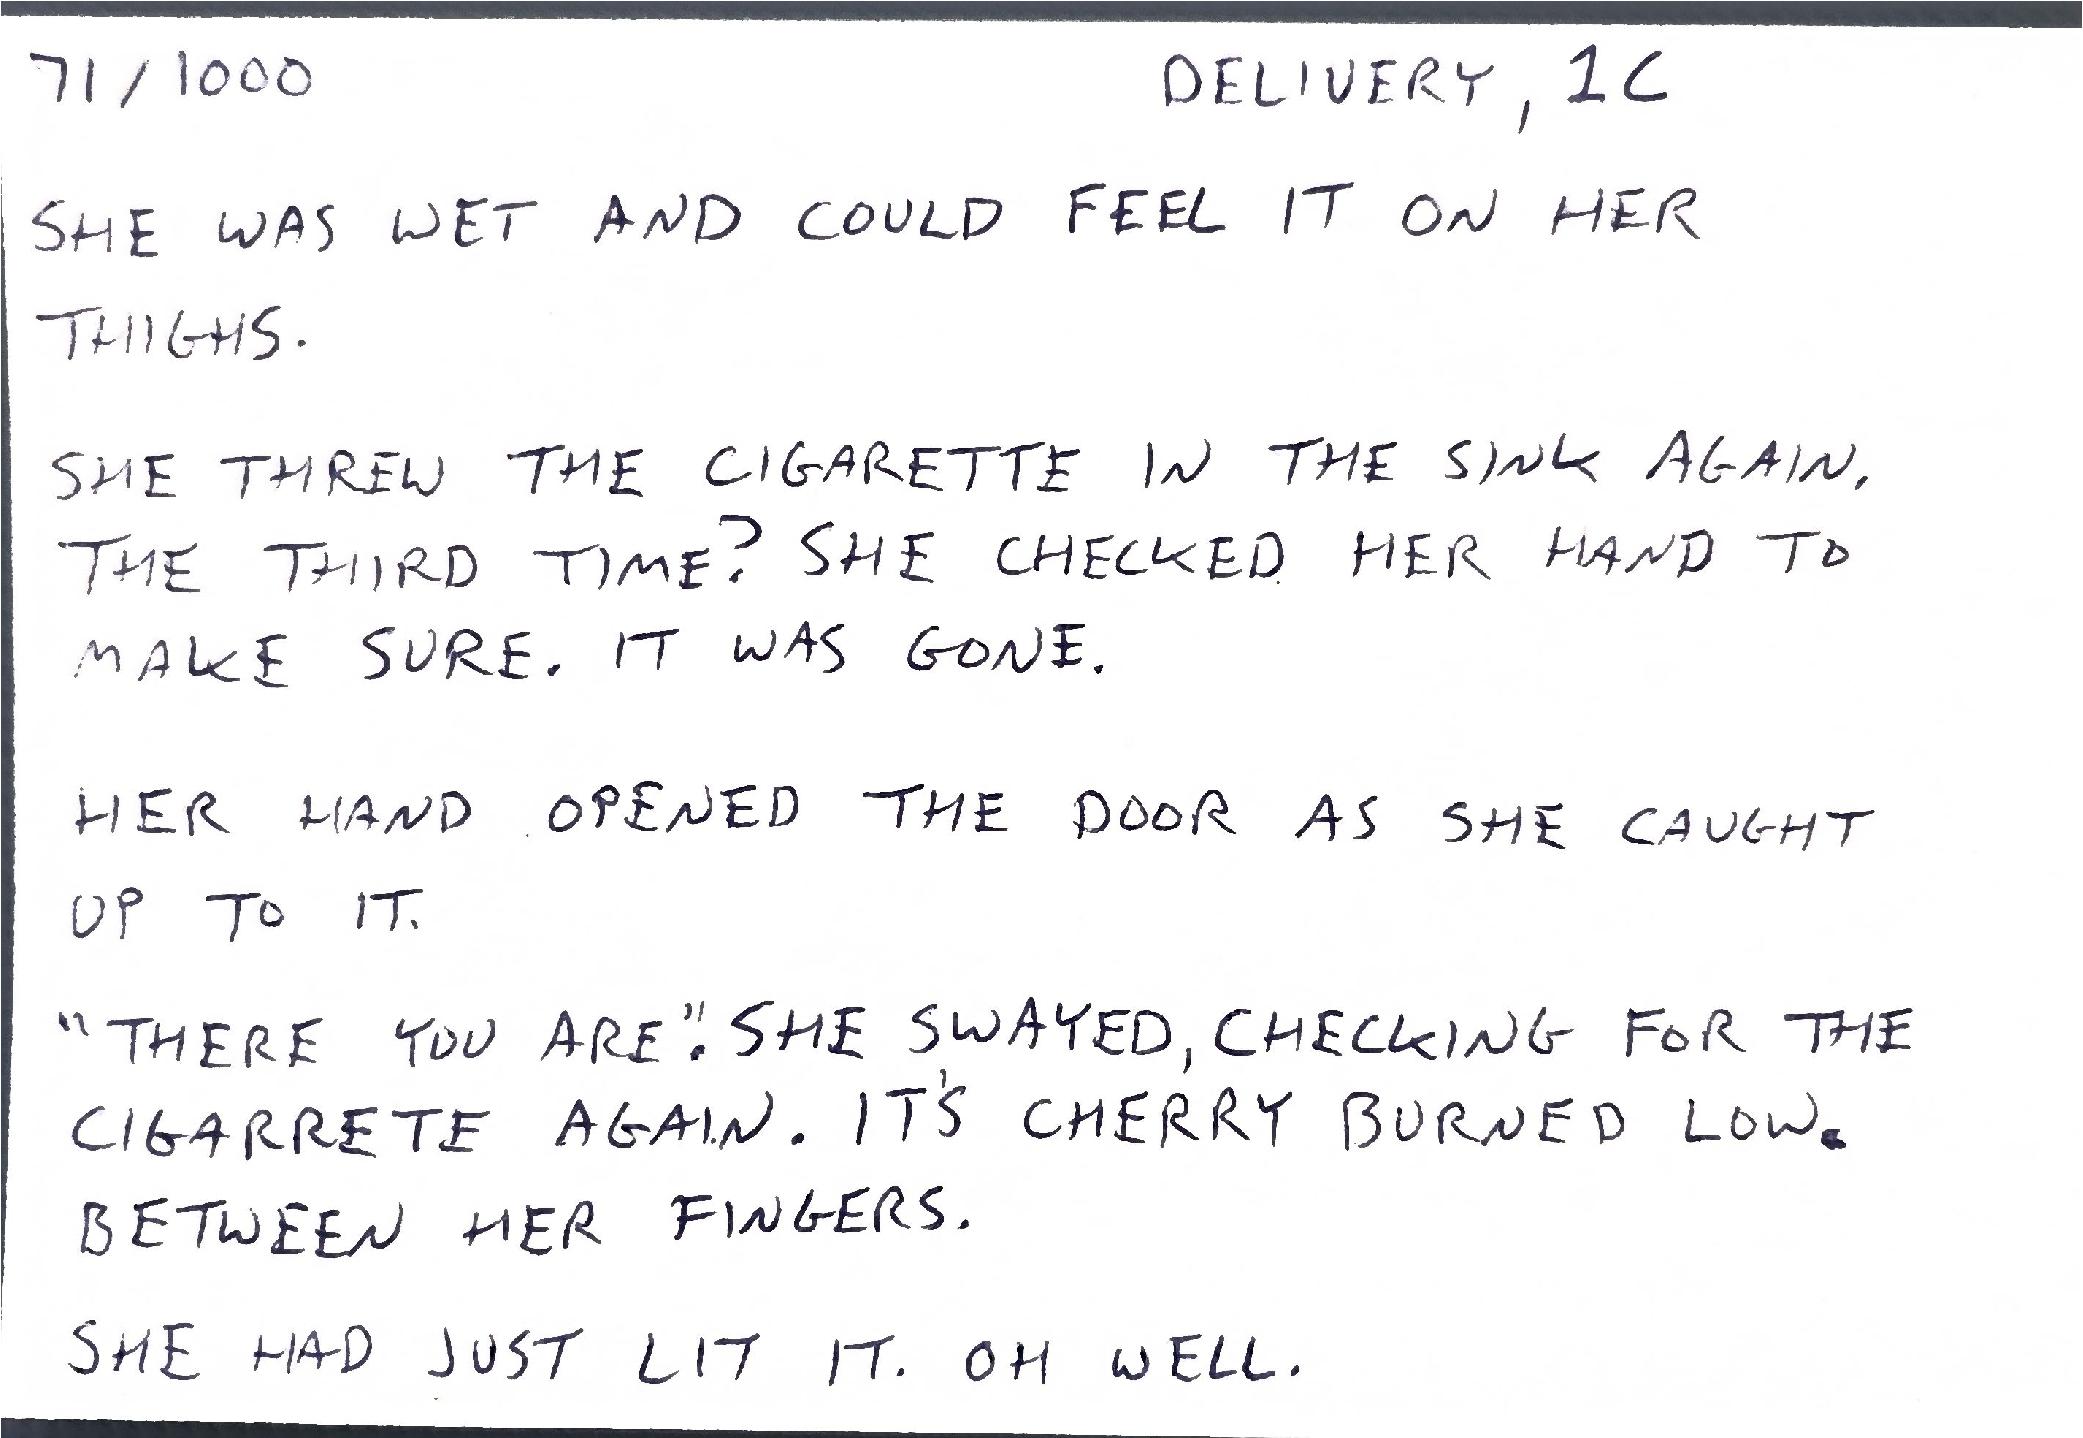 71/1000 DELIVERY, 1C
SHE WAS WET AND COULD FEEL IT ON HER
THIGHS.
SHE THREW THE CIGARETTE IN THE SINK AGAIN.
THE THIRD TIME? SHE CHECKED HER HAND TO
MAKE SURE. IT WAS GONE.
HER HAND OPENED THE DOOR AS SHE CAUGHT
UP TO IT.
"THERE YOU ARE". SHE SWAYED, CHECKING FOR THE
CIGARRETE AGAIN. IT'S CHERRY BURNED LOW.
BETWEEN HER FINGERS.
SHE HAD JUST LIT IT. OH WELL.